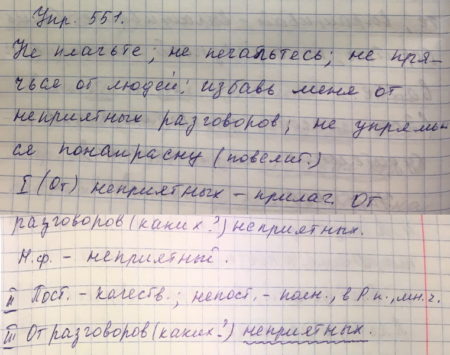 Упр. 551.
Не плачьте; не печальтесь; не пря-
чься от людей; избавь меня от
неприятных разговоров; не упрямь-
ся понапрасну (повелит.)
I (От) неприятных – прилаг. От
разговоров (каких?) неприятных.
Н.ф. – неприятный.
II Пост. – качеств.; непост. – полн., в Р.п., мн.ч.
III От разговоров (каких?) неприятных.